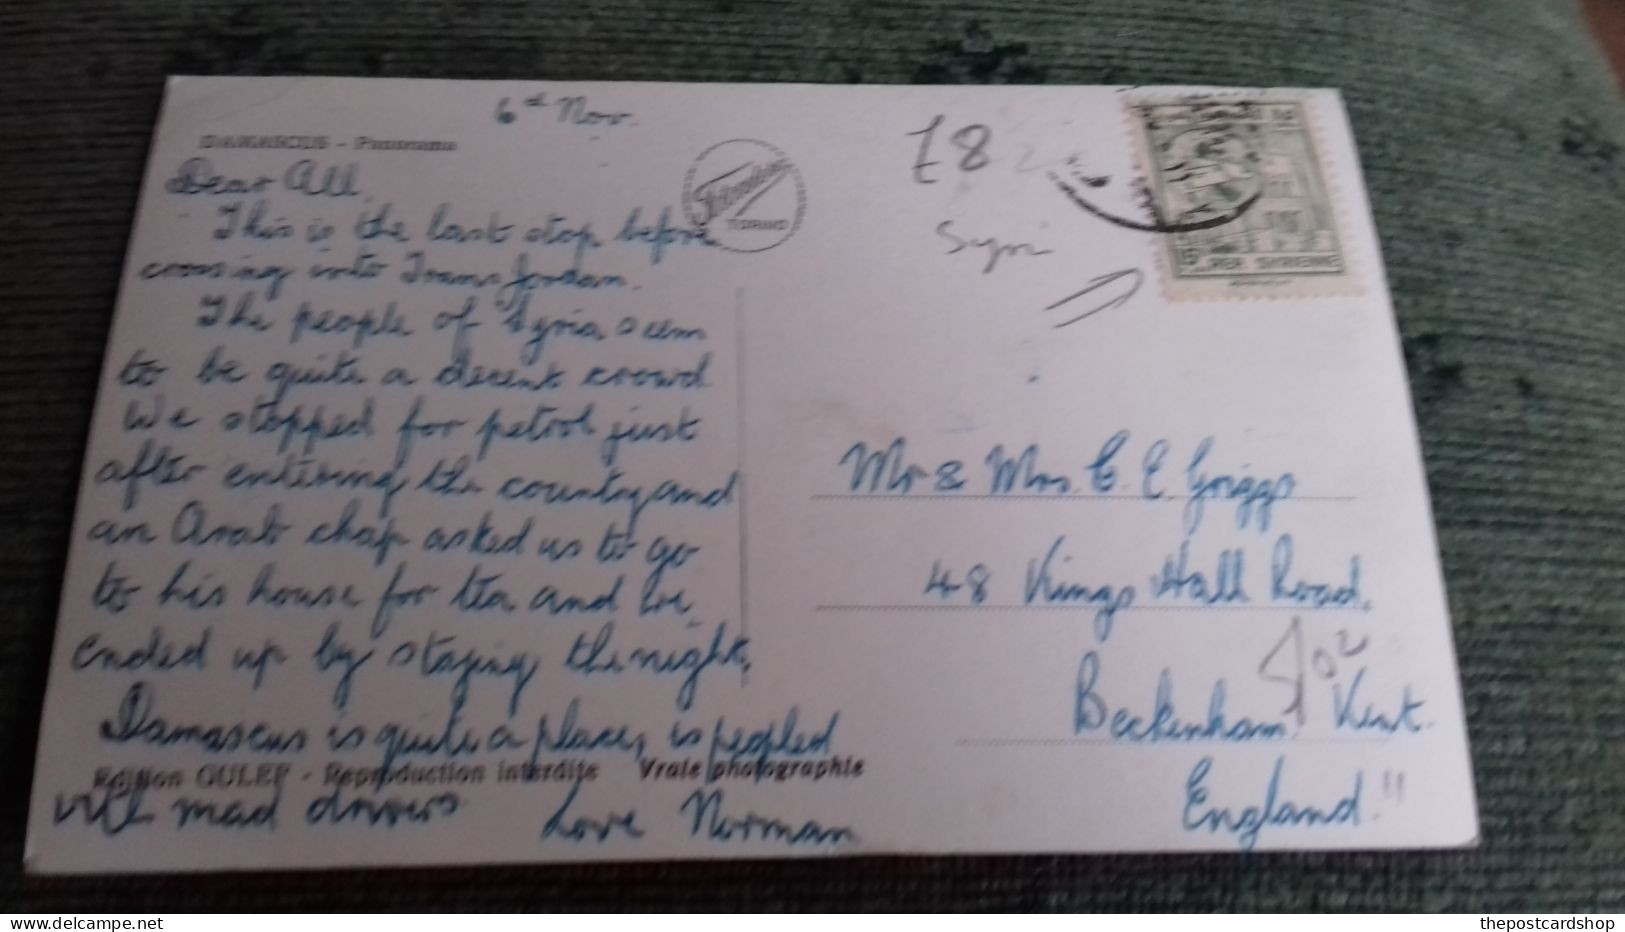 6th Nov.
DAMASCUS - Panorama
Dear All,
This is the last stop before
crossing into Trans Jordan.
The people of Syria seem
to be quite a decent crowd
We stopped for petrol just
after entering the country and
an Arab chap asked us to go
to his house for tea and we
ended up by staying the night.
Damascus is quite a place, is peopled
Edition GULEF - Reproduction interdite Vraie photographie
with mad drivers Love Norman
TORINO
£8
Syri
15
REP SYRIENNE
Mr & Mrs. C. E. Griggs
48 Kings Hall Road.
Beckenham. Kent.
England.
thepostcardshop